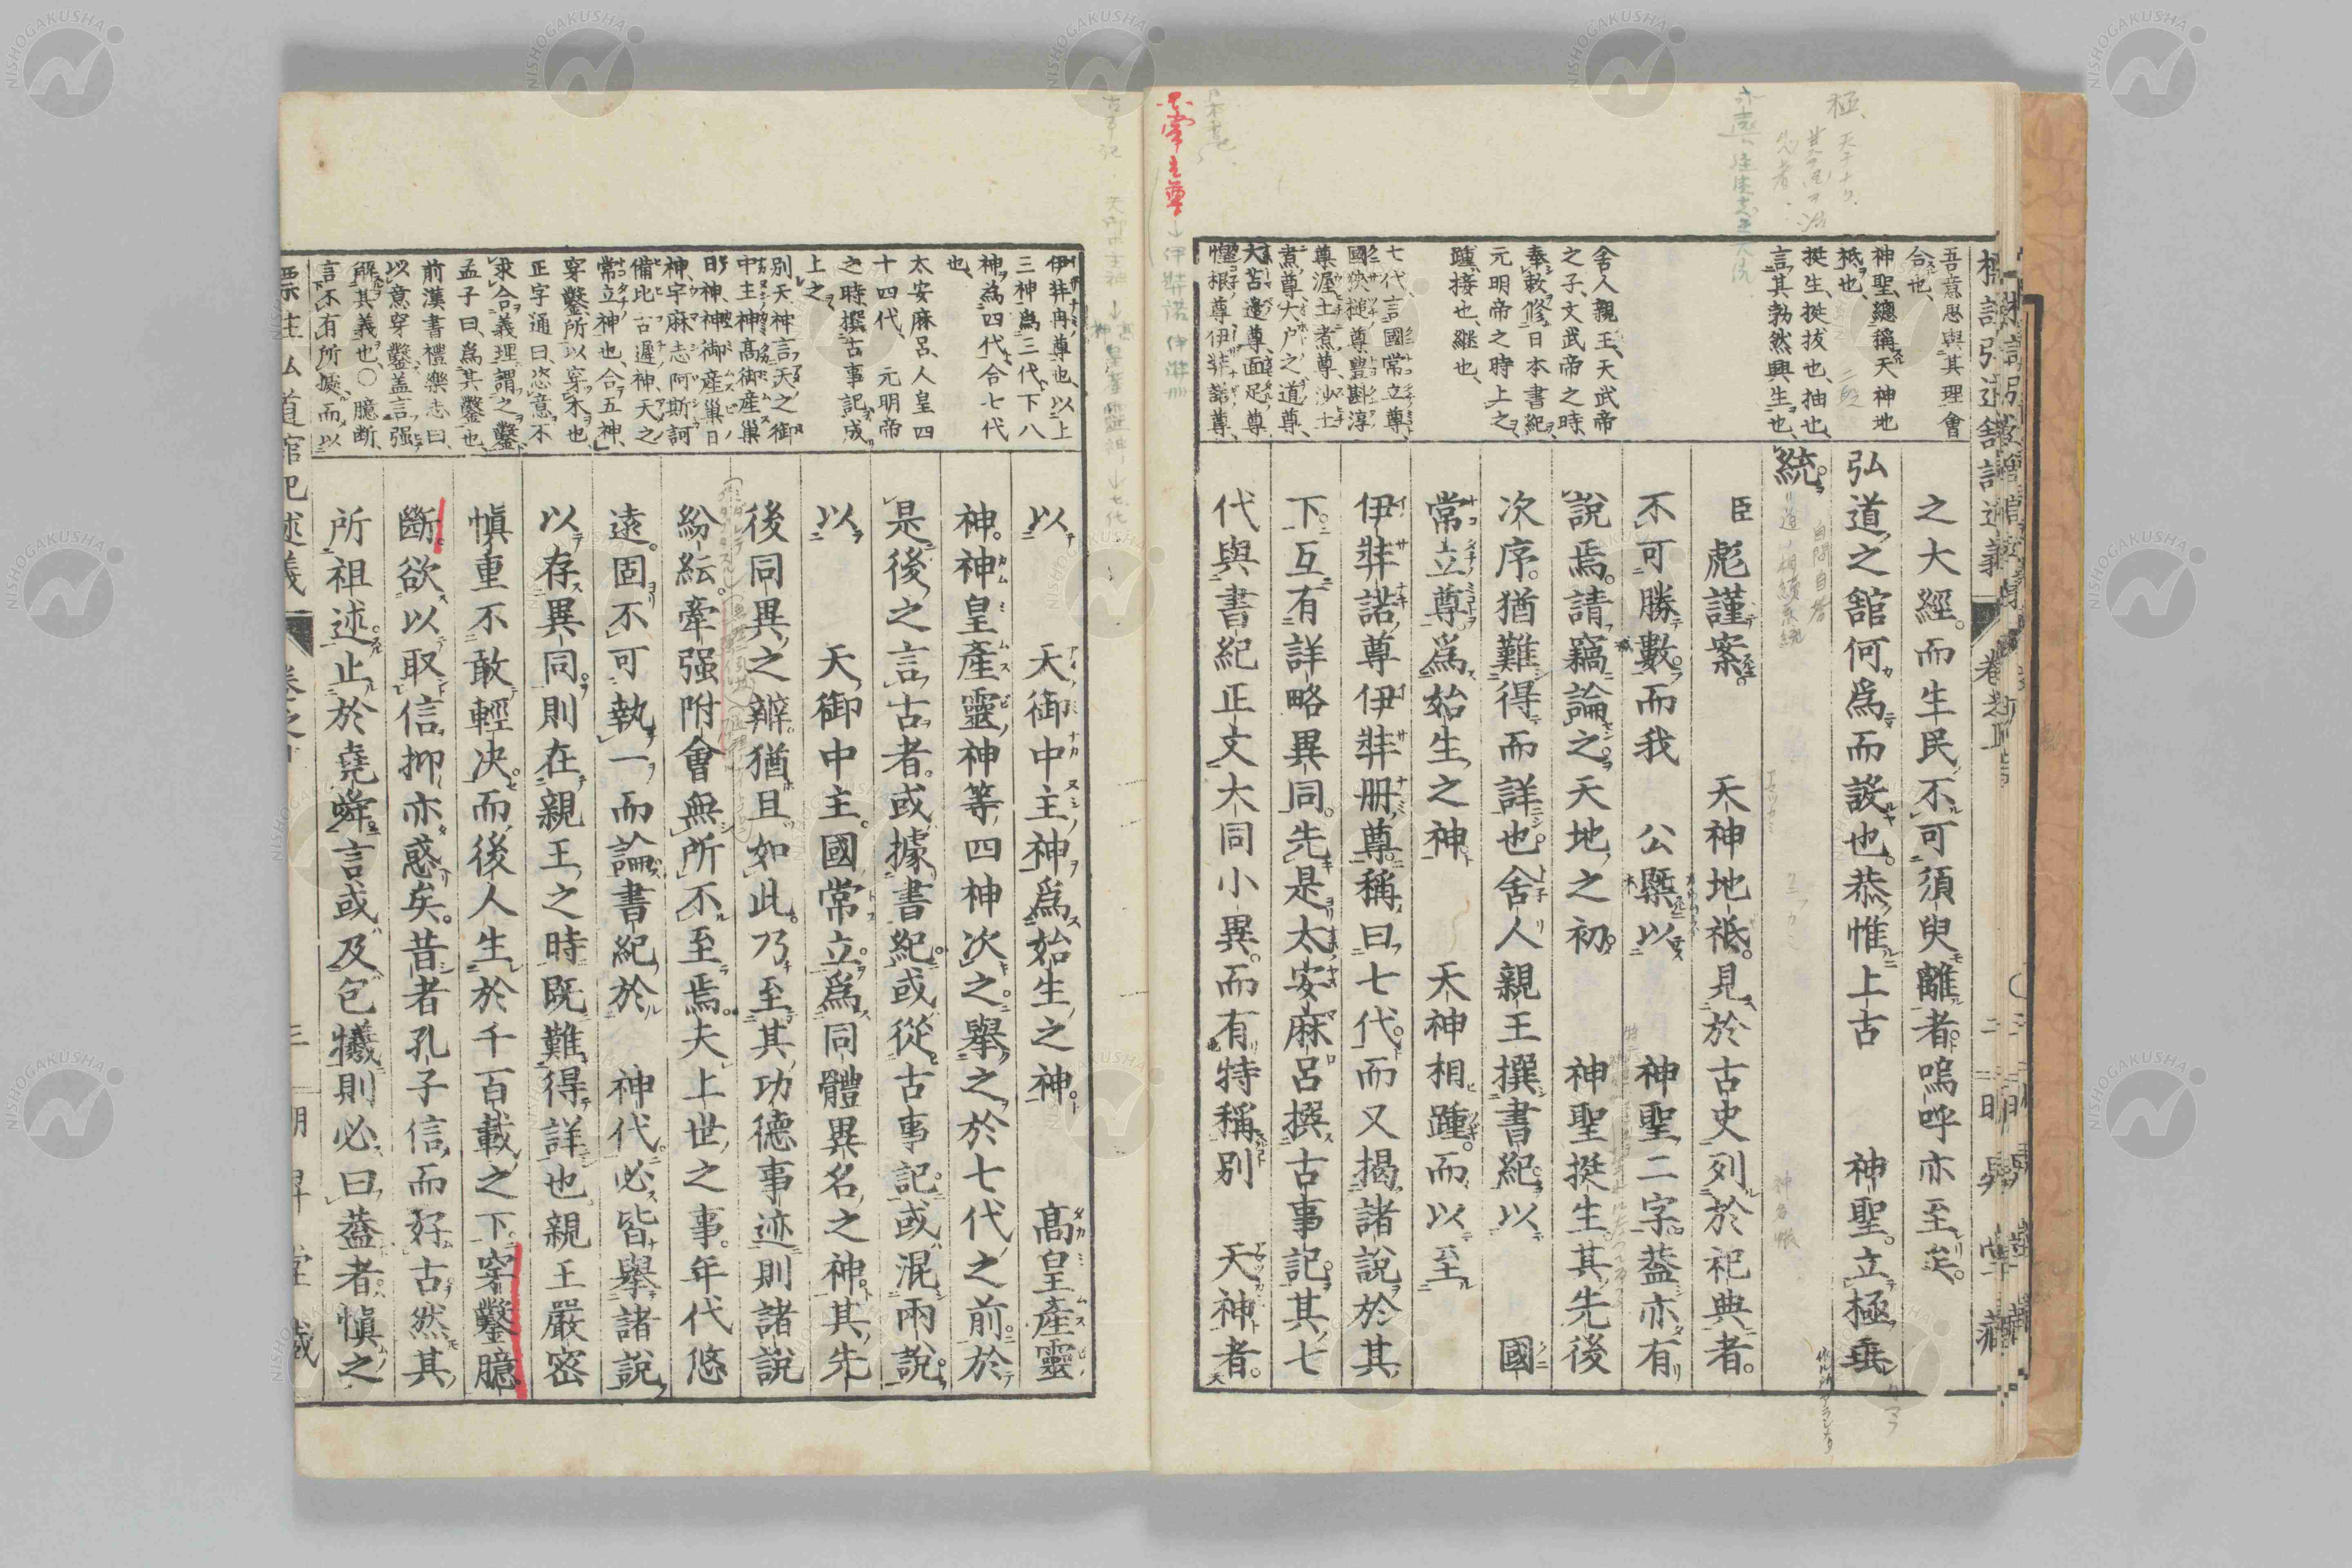 吾意思與其理會
合也、
神聖、總稱天神地
祇也、
挺生、挺拔也、抽也、
言其勃然興生也、
舍人親王、天武帝
之子、文武帝之時、
奉敕修日本書紀、
元明帝之時上之、
踵、接也、繼也、
七代、言國常立尊、
國狹槌尊豊斟渟
尊渥土煮尊沙土
煮尊大戸之道尊、
大苫邊尊、面足尊
惶根尊伊弉諾尊、
之大經。而生民不可須臾離者。嗚呼亦至矣。
弘道之舘何爲而設也。恭惟上古　神聖。立極垂
統。
臣彪謹案。　天神地祇。見於古史列於祀典者。
不可勝數。而我　公槩以　神聖二字。葢亦有
說焉。請竊論之。天地之初。　神聖挺生。其先後
次序。猶難得而詳也。舍人親王撰書紀。以　國
常立尊爲始生之神　天神相踵。而以至
伊弉諾尊伊弉冊尊。稱曰七代。而又揭諸說於其
下。互有詳略異同。先是太安麻呂撰古事記。其七
代與書紀正文大同小異。而有特稱別　天神者。
伊弉冉尊也、以上
三神爲三代、下八
神爲四代、合七代
也、
太安麻呂、人皇四
十四代、元明帝
之時撰古事記成
上之、
別天神、言天之御
中主神高御産巢
日神、神御産巢日
神、宇麻志阿斯訶
備比古遲神、天之
常立神也、合五神、
穿鑿所以穿木也
正字通曰、恣意不
求合義理謂之鑿、
孟子曰、爲其鑿也、
前漢書禮樂志曰、
以意穿鑿、盖言强
解其義也、〇臆斷、
言不有所據、而以
以　天御中主神爲始生之神　高皇產靈
神。神皇產靈神等四神次之。擧之於七代之前。於
是後之言古者。或據書紀。或從古事記。或混兩說。
以　天御中主。國常立。爲同體異名之神。其先
後同異之辨。猶且如此。乃至其功德事迹。則諸說
紛紜。牽强附會。無所不至焉。夫上世之事。年代悠
遠。固不可執一而論。書紀於　神代。必皆擧諸說
以存異同。則在親王之時。既難得詳也。親王嚴密
愼重不敢輕决。而後人生於千百載之下。穿鑿臆
斷。欲以取信。抑亦惑矣。昔者孔子信而好古。然其
所祖述止於堯舜。言或及包犧。則必曰葢者愼之